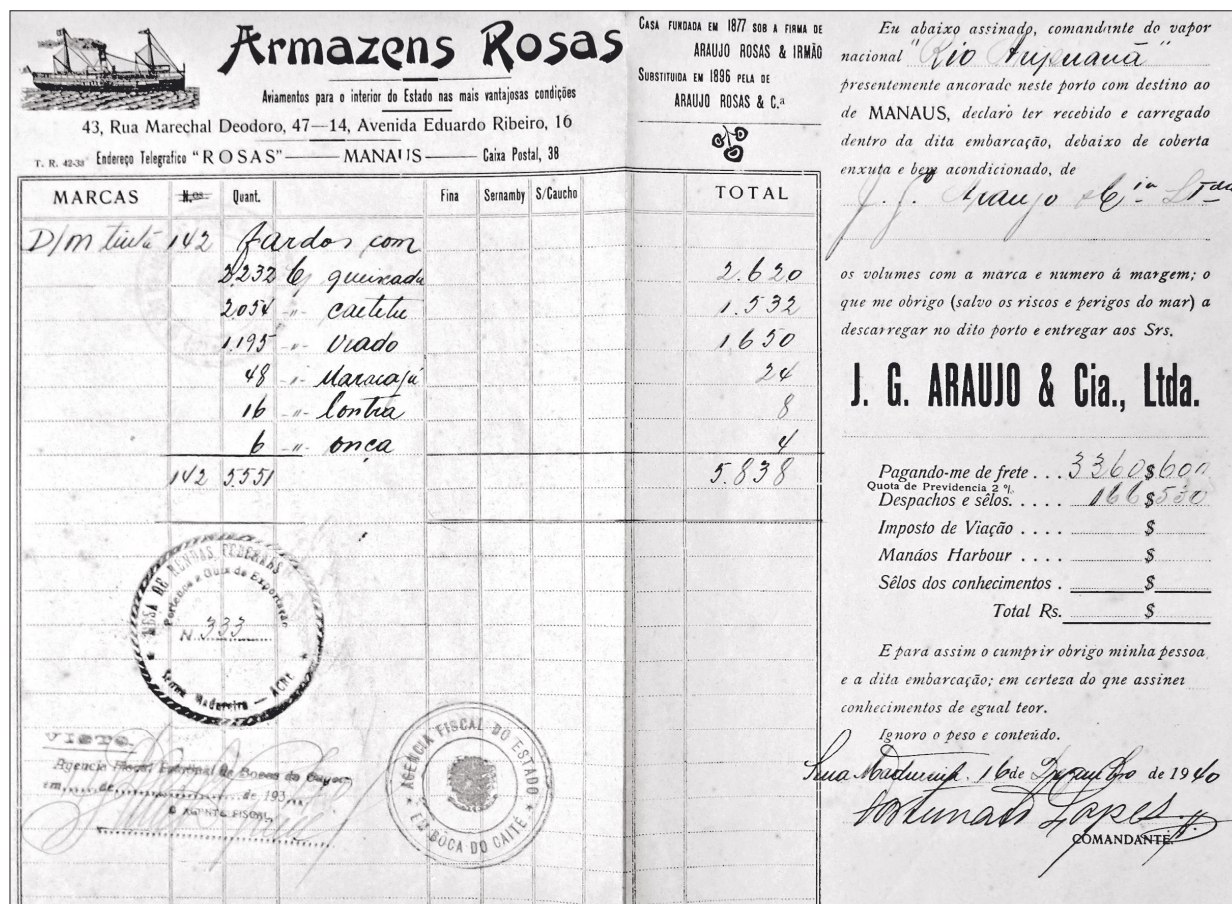 Armazens Rosas
Aviamentos para o interior do Estado nas mais vantajosas condições
43, Rua Marechal Deodoro, 47—14, Avenida Eduardo Ribeiro, 16
T. R. 42-38 Endereço Telegrafico "ROSAS" — MANAUS — Caixa Postal, 38
CASA FUNDADA EM 1877 SOB A FIRMA DE
ARAUJO ROSAS & IRMÃO
SUBSTITUIDA EM 1896 PELA DE
ARAUJO ROSAS & C.ª
MARCAS N.os Quant. Fina Sernamby S/Caucho TOTAL
D/M 142 fardos com
2.232 queixada 2.620
2.054 -"- caetetu 1.532
1.195 -"- viado 1.650
48 -"- Maracajá 24
16 -"- lontra 8
6 -"- onça 4
142 5.551 5.838
MESA DE RENDAS FEDERAES
Pertence a Guia de Exportação
N. 333
Senna Madureira — ACRE
VISTO
Agencia Fiscal
em de de 193
O AGENTE FISCAL,
AGENCIA FISCAL DO ESTADO
EM BÔCA DO CAITÉ
Eu abaixo assinado, comandante do vapor
nacional "Rio Aripuanã"
presentemente ancorado neste porto com destino ao
de MANAUS, declaro ter recebido e carregado
dentro da dita embarcação, debaixo de coberta
enxuta e bem acondicionado, de
J. G. Araujo & Cia Ltda
os volumes com a marca e numero á margem; o
que me obrigo (salvo os riscos e perigos do mar) a
descarregar no dito porto e entregar aos Srs.
J. G. ARAUJO & Cia., Ltda.
Pagando-me de frete . . . 3360$600
Quota de Previdencia 2 %
Despachos e sêlos. . . . . 166$530
Imposto de Viação . . . . $
Manáos Harbour . . . . $
Sêlos dos conhecimentos . $
Total Rs. $
E para assim o cumprir obrigo minha pessoa
e a dita embarcação; em certeza do que assinei
conhecimentos de egual teor.
Ignoro o peso e conteúdo.
Sena Madureira, 16 de Dezembro de 1940
Fortunato Lopes
COMANDANTE.